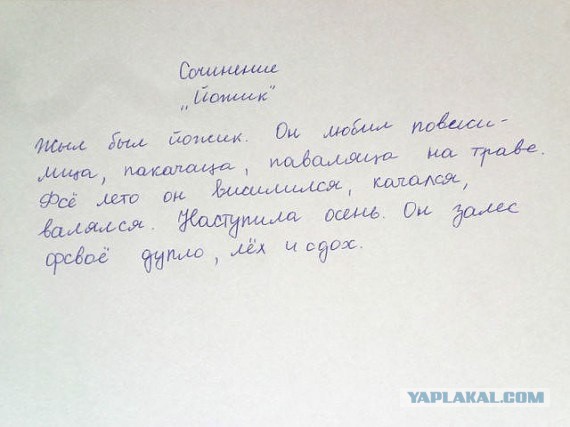 Сочинение
„Йожик"
Жыл был йожик. Он любил повиси-
лица, пакачаца, паваляца на траве.
Фсё лето он висилился, качался,
валялся. Наступила осень. Он залес
фсваё дупло, лёх и сдох.
YAPLAKAL.COM